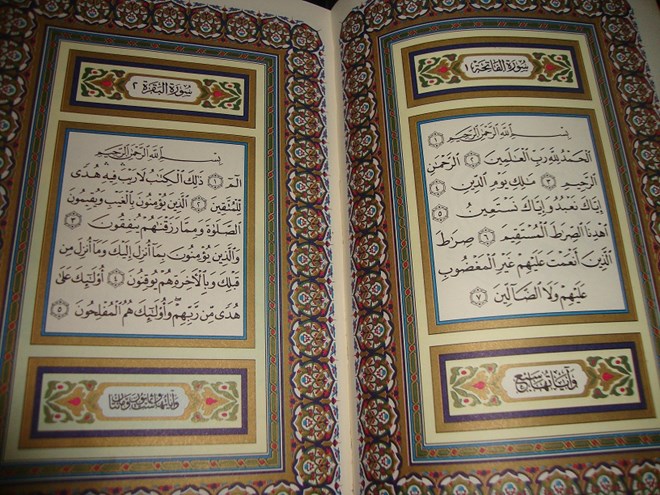 سُورَةُ الفَاتِحَة ١
بِسْمِ ٱللَّهِ ٱلرَّحْمَٰنِ ٱلرَّحِيمِ ١
ٱلْحَمْدُ لِلَّهِ رَبِّ ٱلْعَٰلَمِينَ ٢ ٱلرَّحْمَٰنِ
ٱلرَّحِيمِ ٣ مَٰلِكِ يَوْمِ ٱلدِّينِ ٤
إِيَّاكَ نَعْبُدُ وَإِيَّاكَ نَسْتَعِينُ ٥
ٱهْدِنَا ٱلصِّرَٰطَ ٱلْمُسْتَقِيمَ ٦ صِرَٰطَ
ٱلَّذِينَ أَنْعَمْتَ عَلَيْهِمْ غَيْرِ ٱلْمَغْضُوبِ
عَلَيْهِمْ وَلَا ٱلضَّآلِّينَ ٧
وَآيَاتُهَا سَبْعٌ
سُورَةُ البَقَرَة ٢
بِسْمِ ٱللَّهِ ٱلرَّحْمَٰنِ ٱلرَّحِيمِ
الٓمٓ ١ ذَٰلِكَ ٱلْكِتَٰبُ لَا رَيْبَ فِيهِ هُدًى
لِّلْمُتَّقِينَ ٢ ٱلَّذِينَ يُؤْمِنُونَ بِٱلْغَيْبِ وَيُقِيمُونَ
ٱلصَّلَوٰةَ وَمِمَّا رَزَقْنَٰهُمْ يُنفِقُونَ ٣
وَٱلَّذِينَ يُؤْمِنُونَ بِمَآ أُنزِلَ إِلَيْكَ وَمَآ أُنزِلَ مِن
قَبْلِكَ وَبِٱلْءَاخِرَةِ هُمْ يُوقِنُونَ ٤ أُو۟لَٰٓئِكَ عَلَىٰ
هُدًى مِّن رَّبِّهِمْ وَأُو۟لَٰٓئِكَ هُمُ ٱلْمُفْلِحُونَ ٥
وَآيَاتُهَا سِتٌّ وَثَمَانُونَ وَمِائَتَانِ